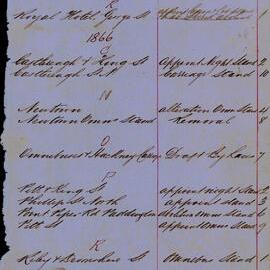 R
Royal Hotel, George St 1
1866
C
Castlereagh & King St Appoint Night Stand 2
Castlereagh St N Carriage Stand 10
N
Newtown alteration Omn Stand 4
Newtown Omns Stand Removal 8
O
Omnibuses & Hackney Carriage Draft By Laws 7
P
Pitt & King St appoint night Stand 2
Phillip St North appoint Stand 3
Point Piper Rd Paddington Stand 6
Pitt St appoint Stand 9
R
Riley & Devonshire St Omnibus Stand 1